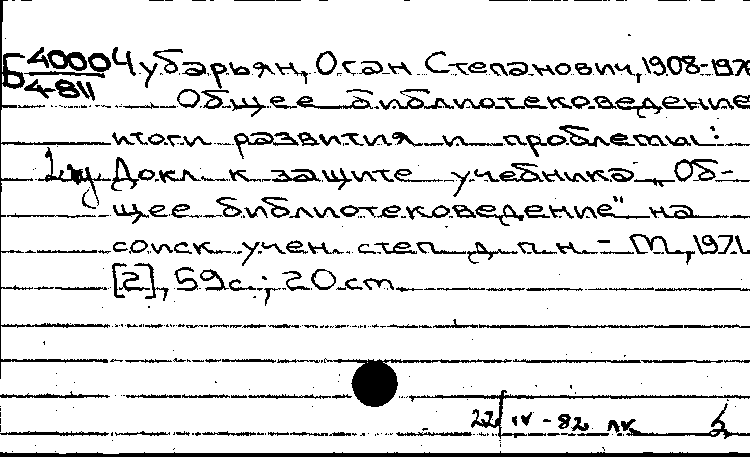 Б 4000 Чубарьян, Оган Степанович, 1908-197
4-811 Общее библиотековедение
итоги развития и проблемы:
Докл. к защите учебника „Об-
щее библиотековедение" на
соиск. учен. степ. д. п. н. - М., 1971.
[2], 59 с.; 20 см.
22/IV-82 лк